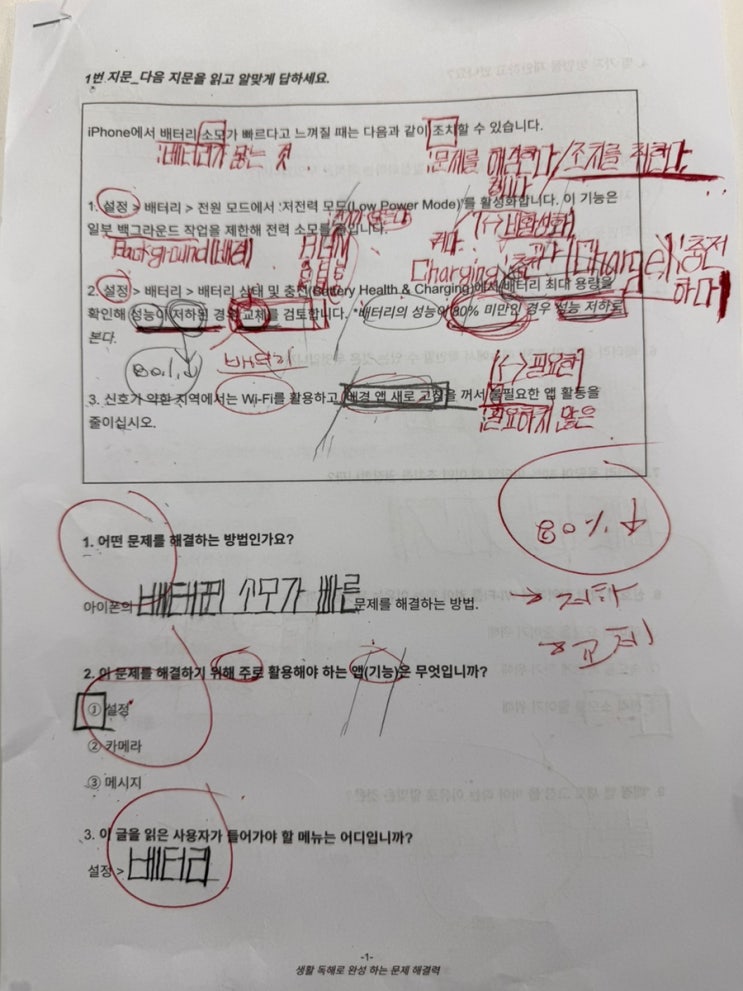 1번 지문_다음 지문을 읽고 알맞게 답하세요.
iPhone에서 배터리 소모가 빠르다고 느껴질 때는 다음과 같이 조치할 수 있습니다.
문제를 해결한다/조치를 취한다
1. 설정 > 배터리 > 전원 모드에서 '저전력 모드(Low Power Mode)'를 활성화합니다. 이 기능은
켜다. (↔비활성화)
일부 백그라운드 작업을 제한해 전력 소모를 줄입니다.
Background(배경)
Charging (Charge) 충전하다
2. 설정 > 배터리 > 배터리 상태 및 충전(Battery Health & Charging)에서 배터리 최대 용량을
확인해 성능이 저하된 경우 교체를 검토합니다. *배터리의 성능이 80% 미만인 경우 성능 저하로
본다.
80%↓
배터리
(↔)필요한
3. 신호가 약환 지역에서는 Wi-Fi를 활용하고, 배경 앱 새로 고침을 꺼서 불필요한 앱 활동을
필요하지 않은
줄이십시오.
80% ↓
→ 저하
→ 교체
1. 어떤 문제를 해결하는 방법인가요?
아이폰의 배터리 소모가 빠른 문제를 해결하는 방법.
2. 이 문제를 해결하기 위해 주로 활용해야 하는 앱(기능)은 무엇입니까?
① 설정
② 카메라
③ 메시지
3. 이 글을 읽은 사용자가 들어가야 할 메뉴는 어디입니까?
설정 > 배터리
-1-
생활 독해로 완성 하는 문제 해결력